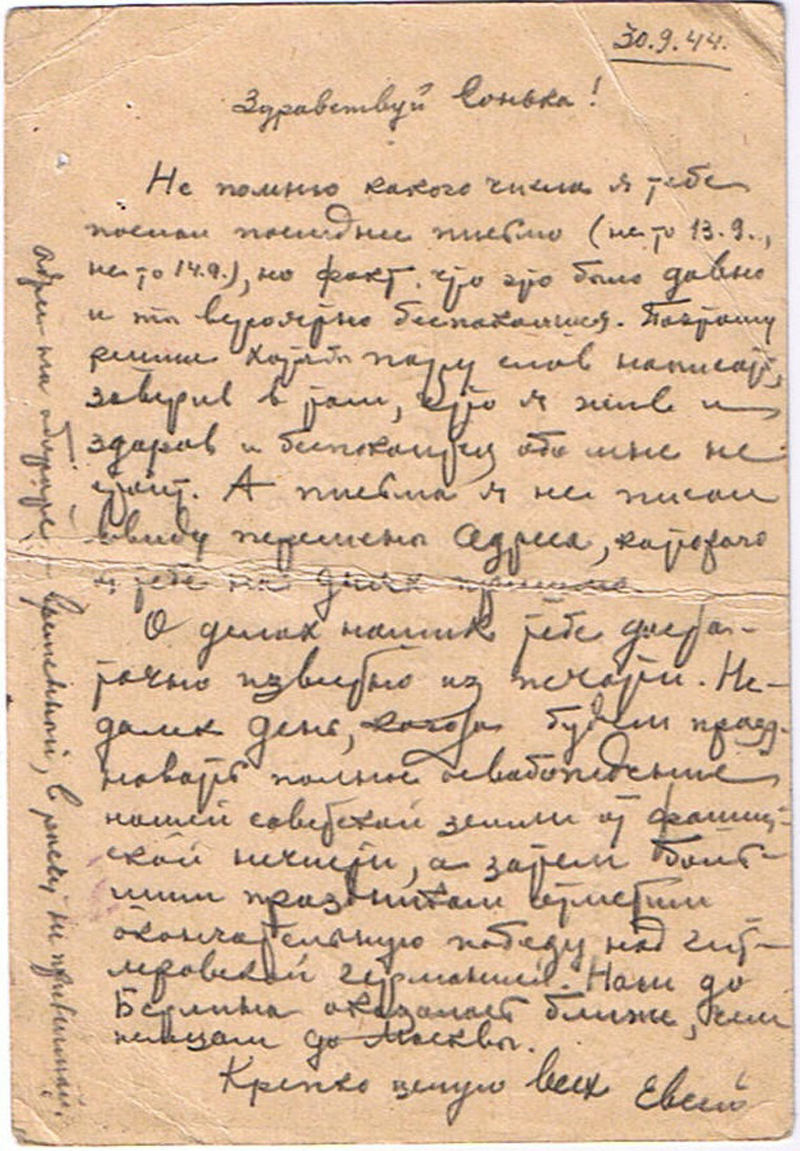 30.9.44.
Здравствуй Сонька!
Не помню какого числа я тебе
послал последнее письмо (не то 13.9.,
не то 14.9.), но факт, что это было давно
и ты вероятно беспокоишься. Поэтому
решил хотя б пару слов написать,
заверив в том, что я жив и
здоров и беспокоиться обо мне не
стоит. А письма я не писал
ввиду перемены адреса, которого
я тебе на днях пришлю.
О делах наших тебе доста-
точно известно из печати. Не-
далек день, когда будем празд-
новать полное освобождение
нашей советской земли от фашист-
ской нечисти, а затем боль-
шим праздником отметим
окончательную победу над гит-
леровской Германией. Нам до
Берлина оказалось ближе, чем
немцам до Москвы.
Крепко целую всех Евсей
Адрес на обороте - временный, в